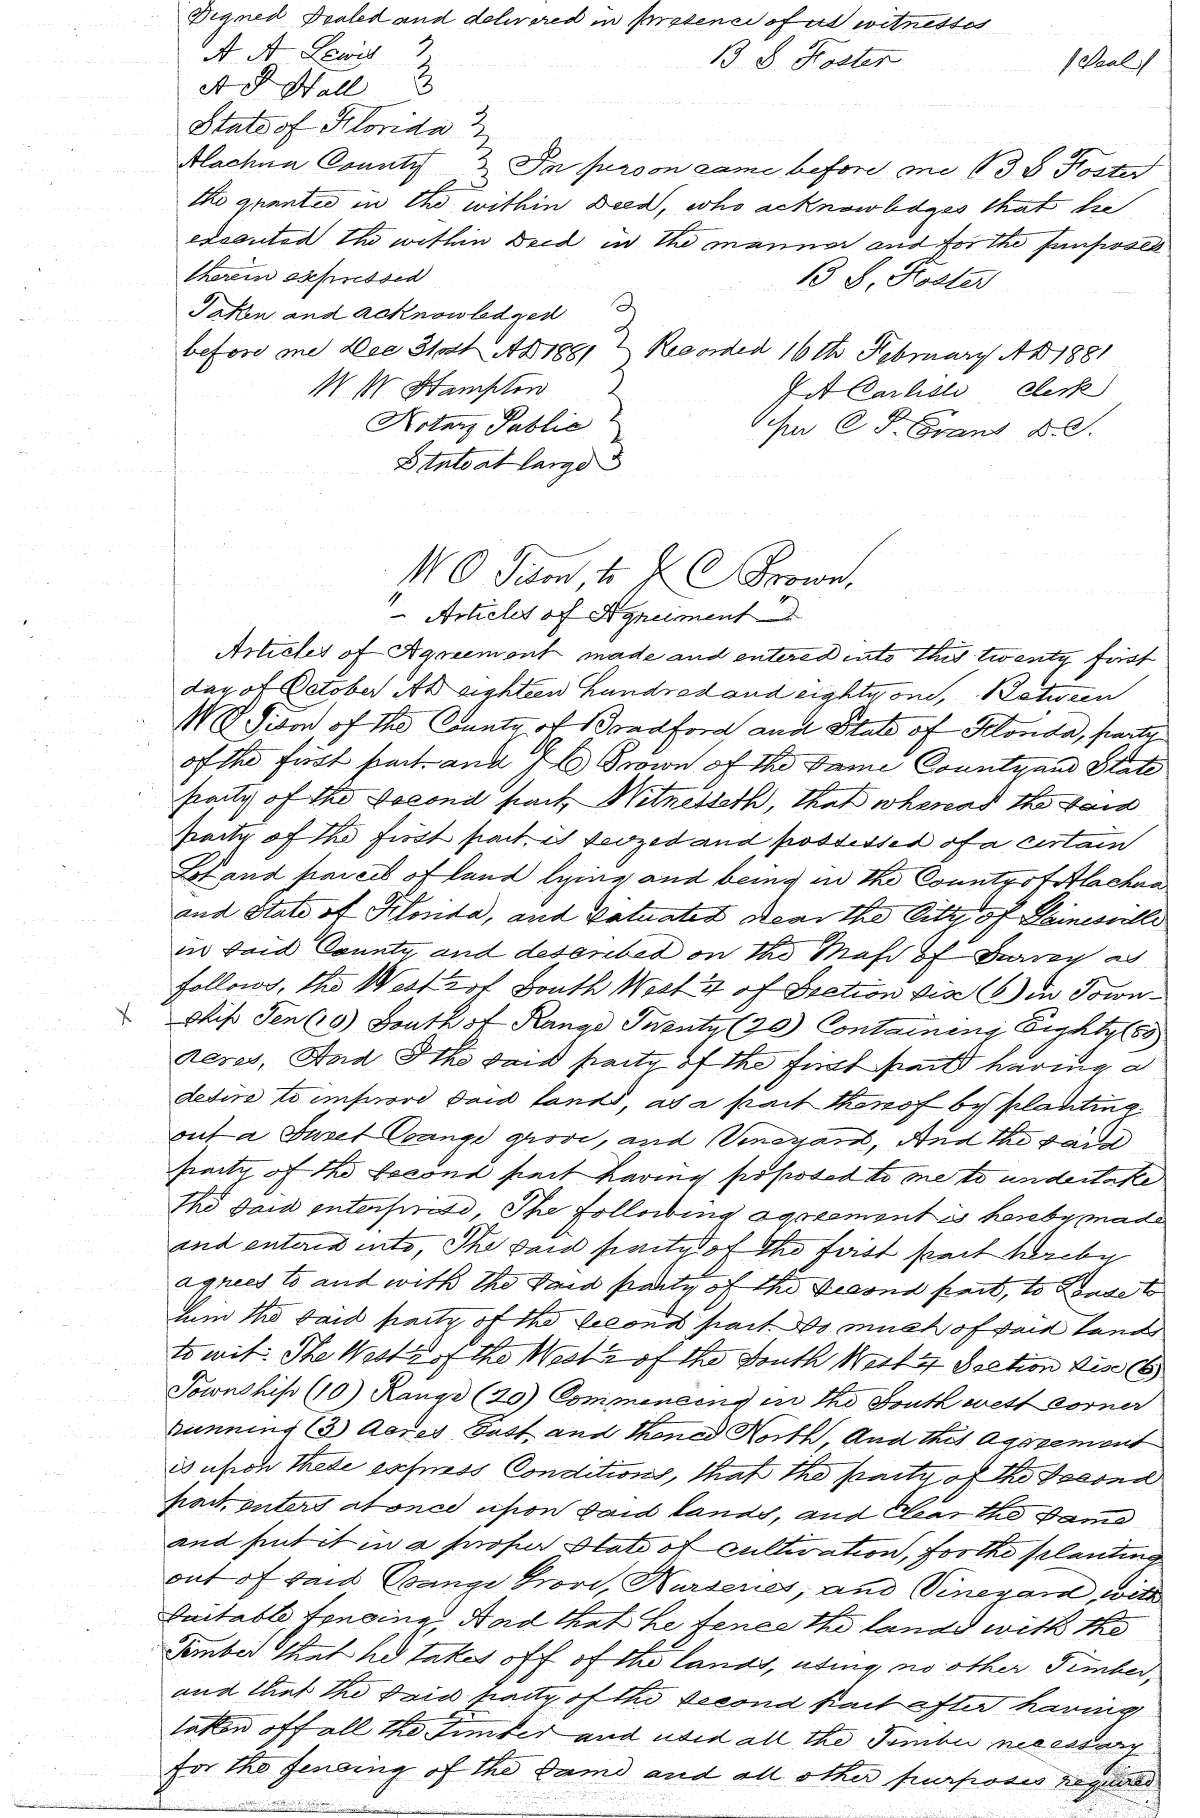 Signed Sealed and delivered in presence of us witnesses
A A Lewis B S Foster (Seal)
A S Hall
State of Florida
Alachua County In person came before me B S Foster
the grantee in the within Deed, who acknowledges that he
executed the within Deed in the manner and for the purposes
therein expressed B S, Foster
Taken and acknowledged
before me Dec 31st AD 1881 Recorded 16th February AD 1881
W W Hampton J A Carlisle Clerk
Notary Public per C P. Evans D. C.
State at large
W O Tison, to J C Brown,
" - Articles of Agreiment "
Articles of Agreement made and entered into this twenty first
day of October AD eighteen hundred and eighty one, Between
W O Tison of the County of Bradford and State of Florida, party
of the first part and J C Brown of the same County and State
party of the Second part, Witnesseth, that whereas the said
party of the first part, is seized and possessed of a certain
Lot and parcel of land lying and being in the County of Alachua
and State of Florida, and situated near the City of Gainesville
in said County and described on the Map of Survey as
follows, the West ½ of South West ¼ of Section six (6) in Town-
x ship Ten (10) South of Range Twenty (20) Containing Eighty (80)
acres, And I the said party of the first part having a
desire to improve said lands, as a part thereof by planting
out a Sweet Orange grove, and Vineyard, And the said
party of the second part having poposed to me to undertake
the said enterprise, The following agreement is hereby made
and entered into, The said party of the first part hereby
agrees to and with the said party of the second part, to Lease to
him the said party of the Second part so much of said lands
to wit: The West ½ of the West ½ of the South West ¼ Section six (6)
Township (10) Range (20) Commencing in the South west corner
running (3) Acres East, and thence North, And this Agreement
is upon these express Conditions, that the party of the Second
part, enters at once upon said lands, and Clear the same
and put it in a proper state of cultivation, for the planting
out of said Orange Grove, Nurseries, and Vineyard, with
suitable fencing, And that he fence the lands with the
Timber that he takes off of the lands, using no other Timber,
and that the said party of the second part after having
taken off all the timber and used all the Timber necessary
for the fencing of the same and all other purposes required